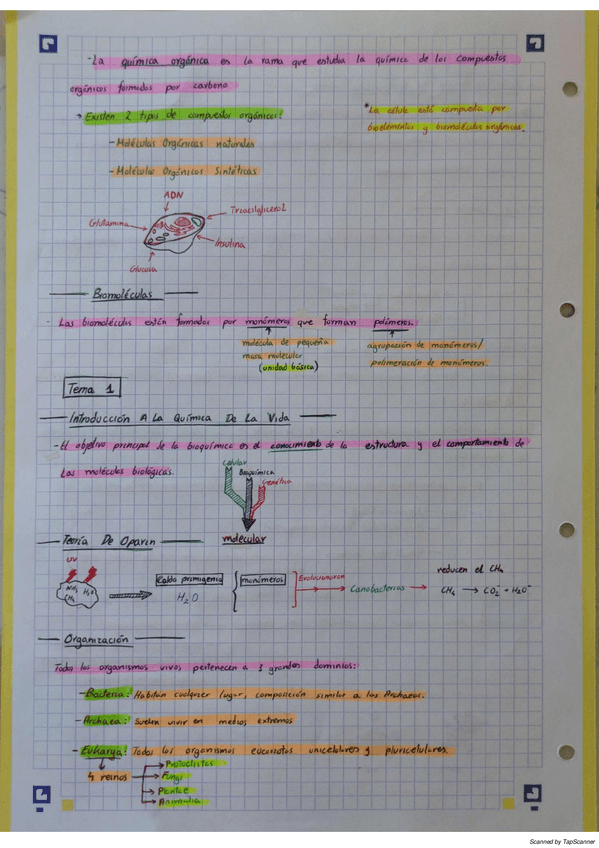 -La química orgánica es la rama que estudia la química de los compuestos
orgánicos formados por carbono
→ Existen 2 tipos de compuestos orgánicos:
*La célula está compuesta por
bioelementos y biomoléculas orgánicas.
-Moléculas Orgánicas naturales
-Moléculas Orgánicas Sintéticas
ADN
Triacilglicerol
Glutamina
Insulina
Glucosa
Biomoléculas
- Las biomoléculas están formadas por monómeros que forman polímeros.
molécula de pequeña
masa molecular
(unidad básica)
agrupación de monómeros/
polimeración de monómeros.
Tema 1
Introducción A La Química De La Vida
-El objetivo principal de la bioquímica es el conocimiento de la estructura y el comportamiento de
las moléculas biológicas.
Celular
Bioquímica
Genética
molecular
Teoría De Oparin
UV
NH3 H2O
CH4
Caldo primigenio
H2O
monómeros
Evolucionaron
Cianobacterias
reducen el CH4
CH4 → CO2 + H2O
Organización
Todos los organismos vivos pertenecen a 3 grandes dominios:
-Bacteria: Habitan cualquier lugar, composición similar a las Archaeas.
-Archaea: Suelen vivir en medios extremos
-Eukarya: Todos los organismos eucariotas unicelulares y pluricelulares.
4 reinos
Protoctistas
Fungi
Plantae
Animalia
Scanned by TapScanner